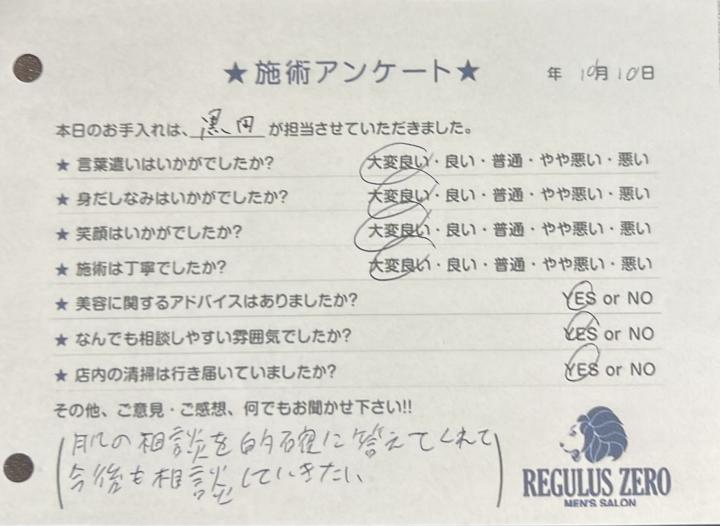 ★施術アンケート★
年 10月10日
本日のお手入れは、黒田が担当させていただきました。
★ 言葉遣いはいかがでしたか? 大変良い・良い・普通・やや悪い・悪い
★ 身だしなみはいかがでしたか? 大変良い・良い・普通・やや悪い・悪い
★ 笑顔はいかがでしたか? 大変良い・良い・普通・やや悪い・悪い
★ 施術は丁寧でしたか? 大変良い・良い・普通・やや悪い・悪い
★ 美容に関するアドバイスはありましたか? YES or NO
★ なんでも相談しやすい雰囲気でしたか? YES or NO
★ 店内の清掃は行き届いていましたか? YES or NO
その他、ご意見・ご感想、何でもお聞かせ下さい!!
肌の相談を的確に答えてくれて
今後も相談していきたい
REGULUS ZERO
MEN'S SALON